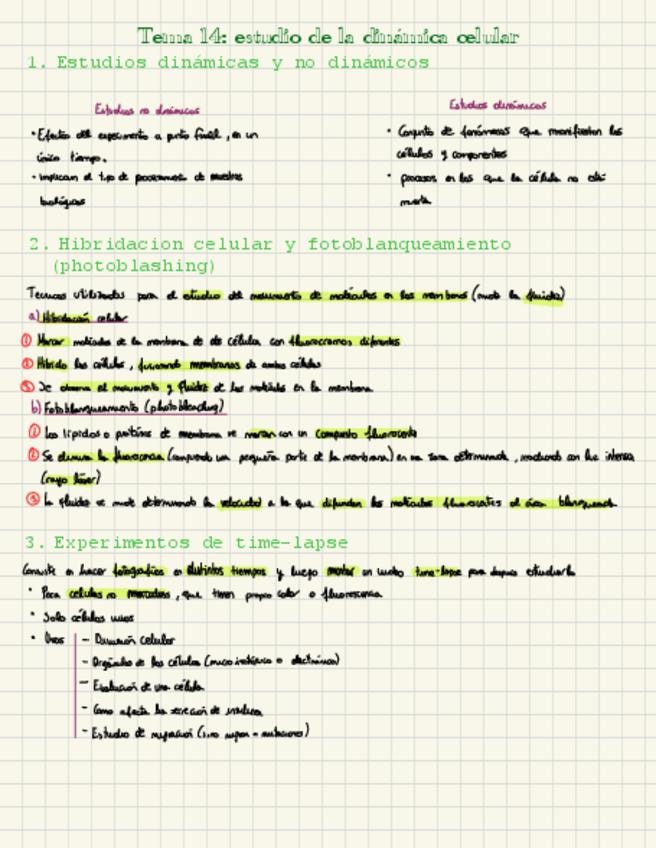 Tema 14: estudio de la dinámica celular
1. Estudios dinámicas y no dinámicos
Estudios no dinámicos
• Efectos del experimento a punto final, en un
único tiempo.
• implican el tipo de de muestras
biológicas
Estudios dinámicos
• Conjunto de fenómenos que manifiestan las
células y componentes
• procesos en los que la célula no está
muerta
2. Hibridacion celular y fotoblanqueamiento
(photoblashing)
Tecnicas utilizadas para el estudio del movimiento de moléculas en las membranas (mide la fluidez)
a) Hibridación celular
① Marcar moléculas de la membrana de de célula con fluorocromos diferentes
② Hibrido las células, fusionando membranas de ambas células
③ Se observa el movimiento y fluidez de las moléculas en la membrana
b) Fotoblanqueamiento (photobleaching)
① Los lípidos o proteínas de membrana se marcan con un compuesto fluorescente
② Se elimina la fluorescencia (una pequeña parte de la membrana) en una zona determinada, irradiando con luz intensa
(rayo láser)
③ La fluidez se mide determinando la velocidad a la que difunden las moléculas fluorescentes al área blanqueada
3. Experimentos de time-lapse
Consiste en hacer fotografías en distintos tiempos y luego montar un video time-lapse para después estudiarlo
• Para celulas no marcadas, que tienen propio color o fluorescencia
• Solo células vivas
• Usos
- División celular
- Orgánulos de las células (microscópico o electrónico)
- Evaluación de una célula
- Como afecta la secreción de insulina
- Estudio de migración